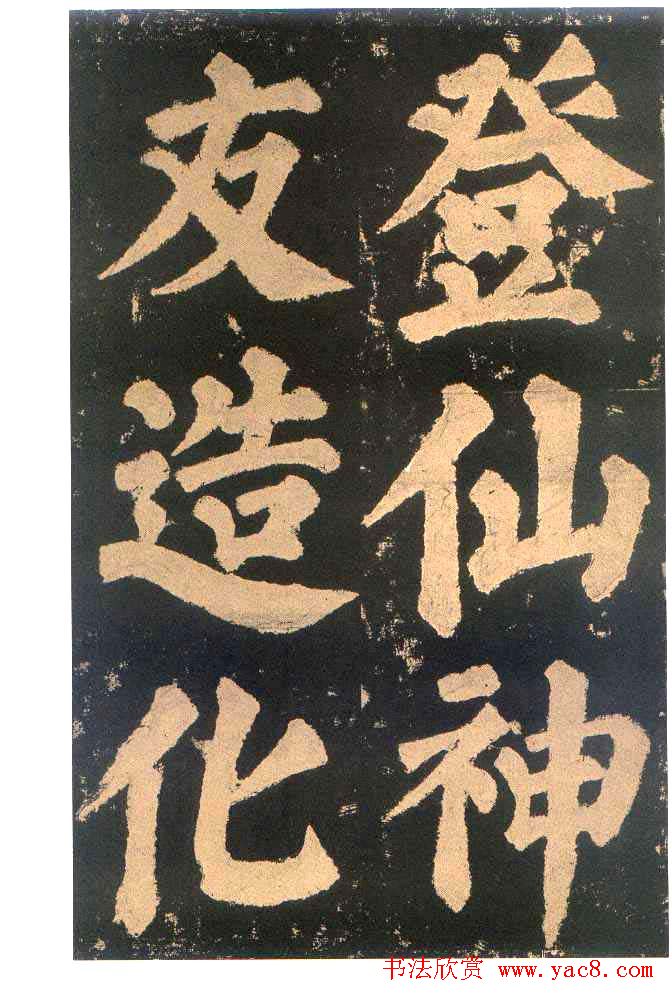 登仙神
友造化
书法欣赏 www.yac8.com